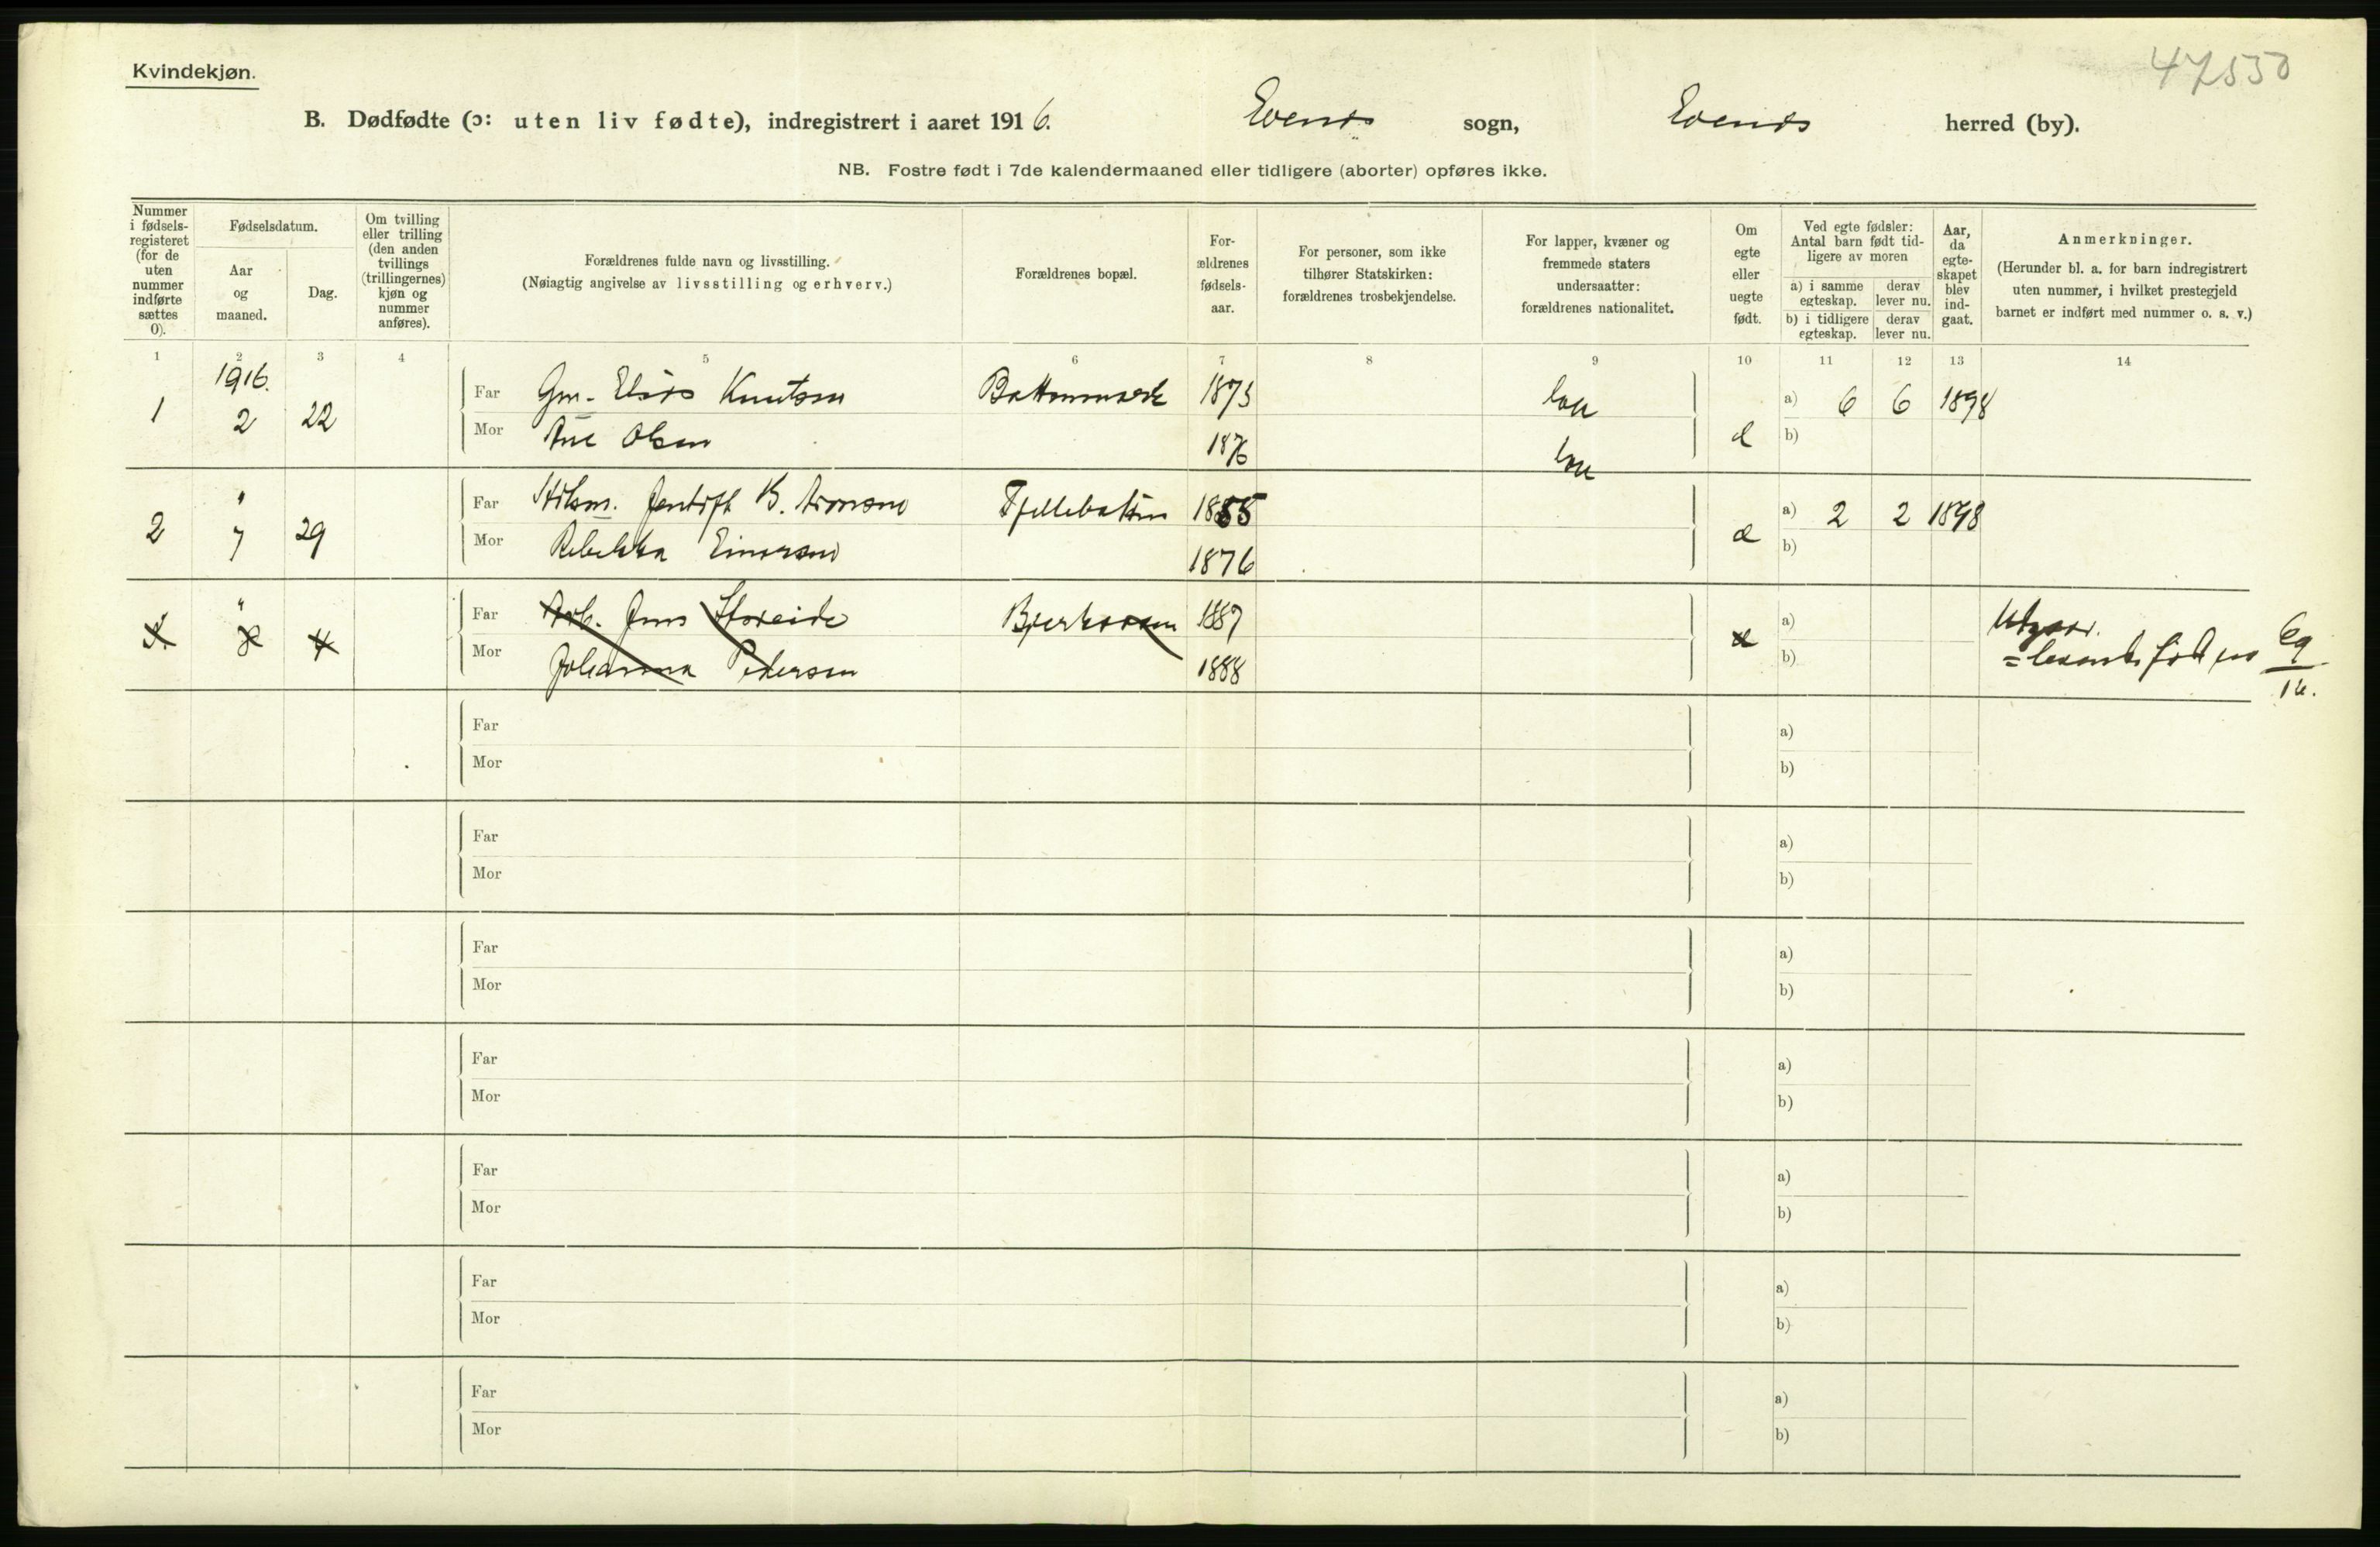 Kvindekjøn.
47550
B. Dødfødte (ɔ: uten liv fødte), indregistrert i aaret 1916. Evenes sogn, Evenes herred (by).
NB. Fostre født i 7de kalendermaaned eller tidligere (aborter) opføres ikke.
Nummer i fødsels-registeret (for de uten nummer indførte sættes 0).
Fødselsdatum.
Aar og maaned.
Dag.
Om tvilling eller trilling (den anden tvillings (trillingernes) kjøn og nummer anføres).
Forældrenes fulde navn og livsstilling.
(Nøiagtig angivelse av livsstilling og erhverv.)
Forældrenes bopæl.
For-ældrenes fødsels-aar.
For personer, som ikke tilhører Statskirken: forældrenes trosbekjendelse.
For lapper, kvæner og fremmede staters undersaatter: forældrenes nationalitet.
Om egte eller uegte født.
Ved egte fødsler: Antal barn født tid-ligere av moren
a) i samme egteskap.
derav lever nu.
b) i tidligere egteskap.
derav lever nu.
Aar, da egte-skapet blev ind-gaat.
Anmerkninger.
(Herunder bl. a. for barn indregistrert uten nummer, i hvilket prestegjeld barnet er indført med nummer o. s. v.)
1 2 3 4 5 6 7 8 9 10 11 12 13 14
1916.
1 2 22 Far Gm. Elias Knutsen 1873 a) 6 6 1898
Mor Ane Olsen 1876 b)
2 " 7 29 Far B. Aronsen 1885 a) 2 2 1898
Mor Rebekka Einarsen 1876 b)
" 4 Far Arb. Jens 1887 a)
Mor Johanna Pedersen 1888 b)
født
Far a)
Mor b)
Far a)
Mor b)
Far a)
Mor b)
Far a)
Mor b)
Far a)
Mor b)
Far a)
Mor b)
Far a)
Mor b)